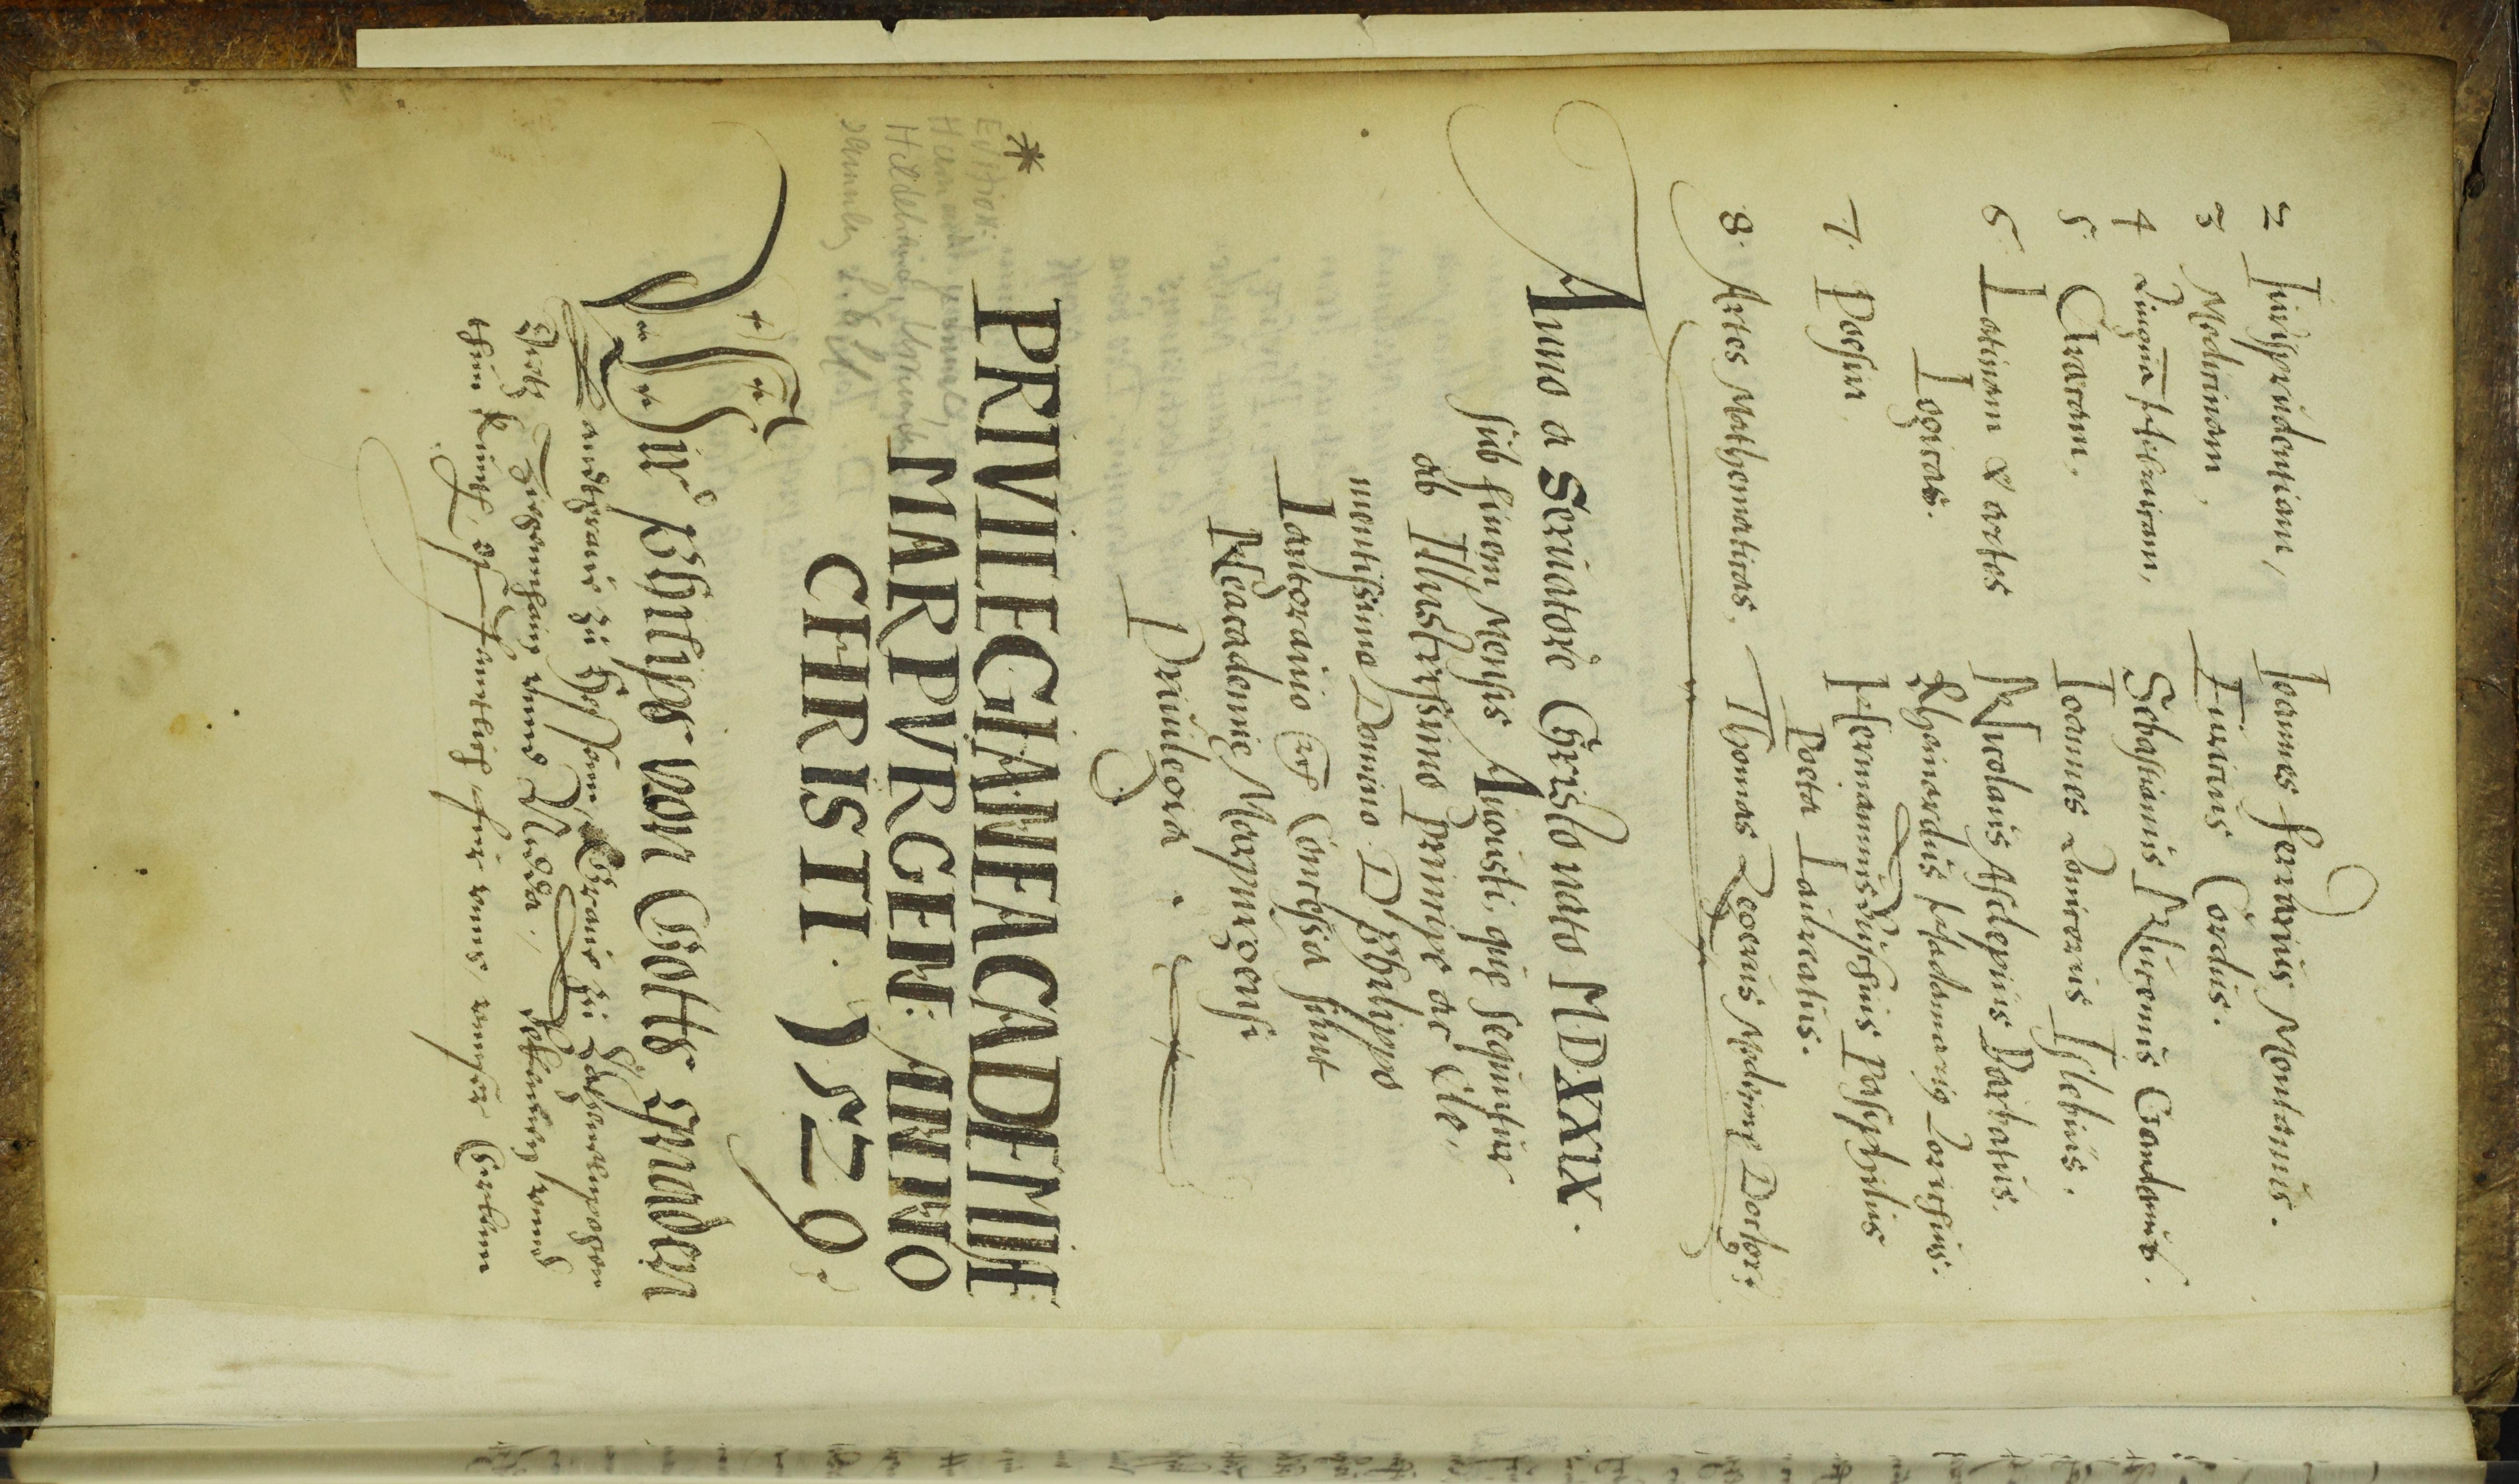 2 Iurisprudentiam, Ioannes Ferrarius Montanus.
3 Medicinam, Euricius Cordus.
4 Linguā Hebraicam, Sebastianus Nucenus
5 Graecam. Ioannes Lonicerus Islebius.
6 Latinam & artes Nicolaus Asclepius Barbatus.
Logicas. Rheinardus Hadamariꝰ Lorichius.
7. Poesin Hermannus Buschius Pasiphilus
Poeta Laureatus.
8. Artes Mathematicas. Thomas Zegerus Medicinę Doctor.
Anno a Seruatore Christo nato M.D.XXIX.
sub finem Mensis Augusti, quę sequuntur
ab Illustrissimo principe ac Cle,
mentissimo Domino D. Philippo
Lantgrauio &c Concessa sunt
Academię Marpurgensi
Priuilegia.
* PRIVILEGIA NE ACADEMIÆ
MARPVRGEN: ANNO
CHRISTI. 1529.
Edition:
Hildebrand, Urkunden
Wir Philips von Gotts gnaden
Landtgraue zu Hessen, Graue zu Catzenelnpogen
Dietz Ziegenhain vnnd Nidda, Bekennen vnnd
thun kunth offentlich fur vnns, vnnser Erbenn